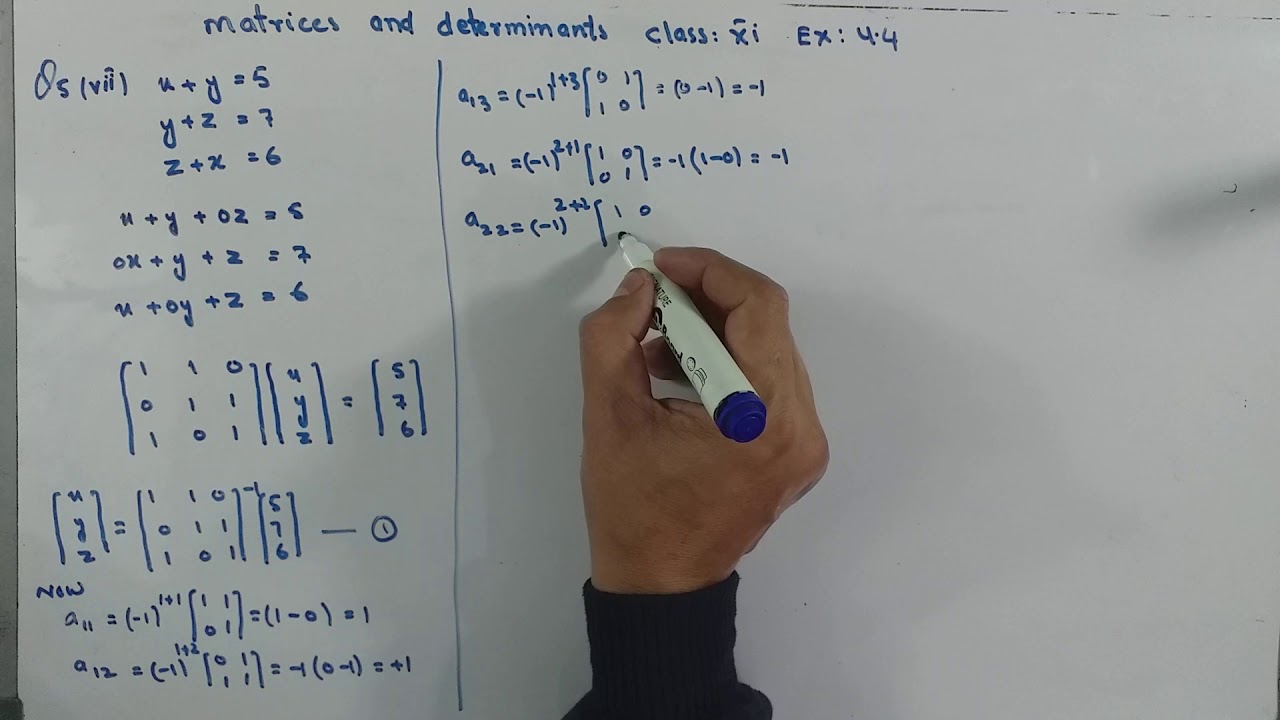 matrices and determinants class: xi Ex: 4.4
Q5 (vii) x + y = 5
y + z = 7
z + x = 6
x + y + 0z = 5
0x + y + z = 7
x + 0y + z = 6
[1 1 0
0 1 1
1 0 1] [x
y
z] = [5
7
6]
[x
y
z] = [1 1 0
0 1 1
1 0 1]⁻¹ [5
7
6] — ①
Now
a₁₁ = (-1)¹⁺¹ [1 1
0 1] = (1-0) = 1
a₁₂ = (-1)¹⁺² [0 1
1 1] = -1(0-1) = +1
a₁₃ = (-1)¹⁺³ [0 1
1 0] = (0-1) = -1
a₂₁ = (-1)²⁺¹ [1 0
0 1] = -1(1-0) = -1
a₂₂ = (-1)²⁺² [1 0